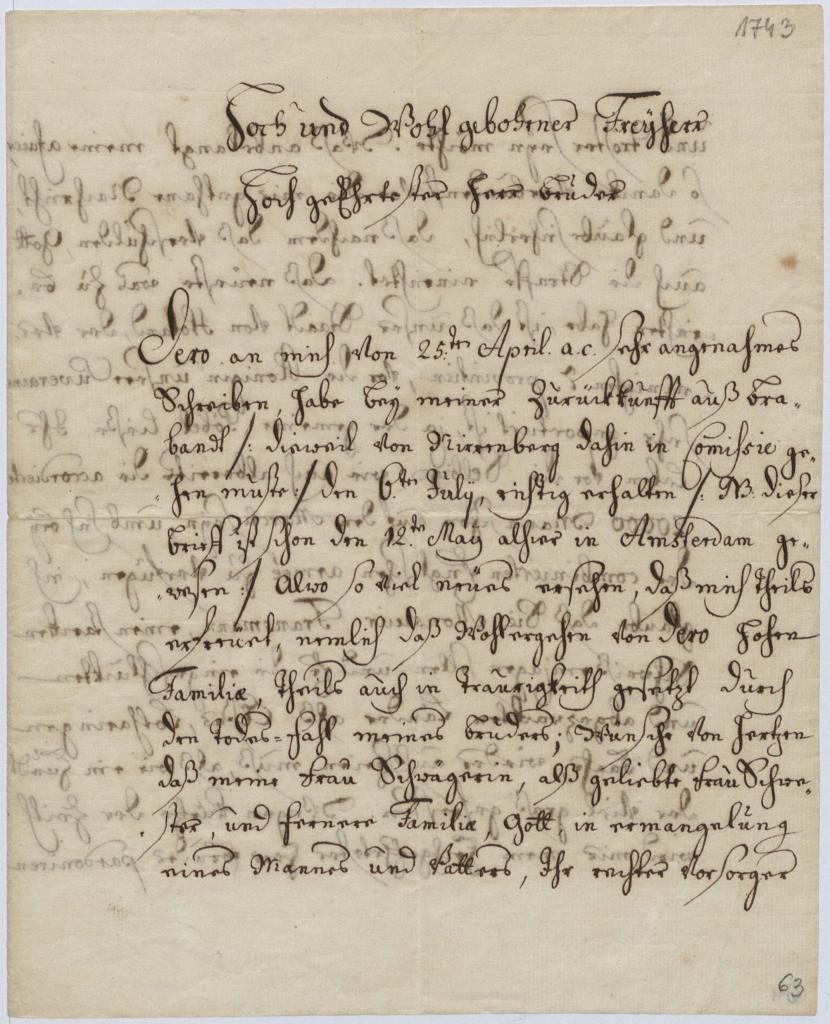 1743
Hoch und Wohl gebohrner Freyherr
Hoch geEhrtester Herr Bruder
Dero an mich von 25.ten April. a.c. sehr angenehmes
Schreiben, habe bey meiner Zurückkunfft auß Bra-
bandt /: dieweil von Nirrenberg dahin in Comissie ge-
hen muste :/ den 6.ten July, richtig erhalten /: NB. dieser
brieff ist schon den 12.ten May alhier in Amsterdam ge-
wesen :/ Alwo so viel neues ersehen, daß mich theils
erfreuet, nemlich daß Wohlergehen von Dero Hohen
Familiæ, theils auch in Traurigkeith gesetzt durch
den Todes-fahl meines bruders; Wünsche von Hertzen
daß meine frau Schwägerin, alß geliebte frau Schwe-
ster, und fernere Familiæ, Gott, in ermangelung
eines Mannes und Vatters, Ihr rechter Vorsorger
63